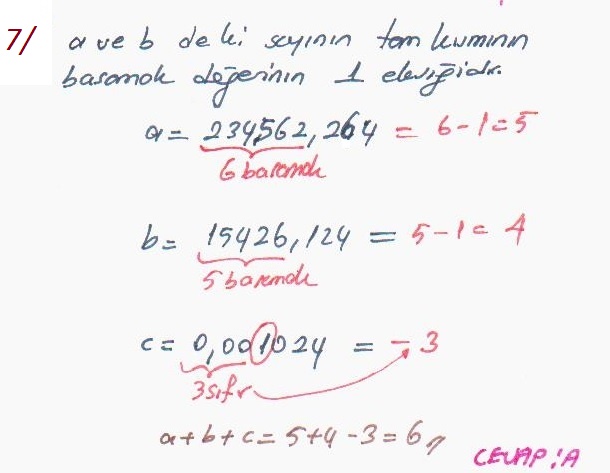 7/ a ve b de ki sayının tam kısmının
basamak değerinin 1 eksiğidir.
a = 234562,264 = 6-1=5
6 basamak
b = 15426,124 = 5-1= 4
5 basamak
c = 0,001024 = -3
3 sıfır
a+b+c = 5+4-3=6//
CEVAP:A